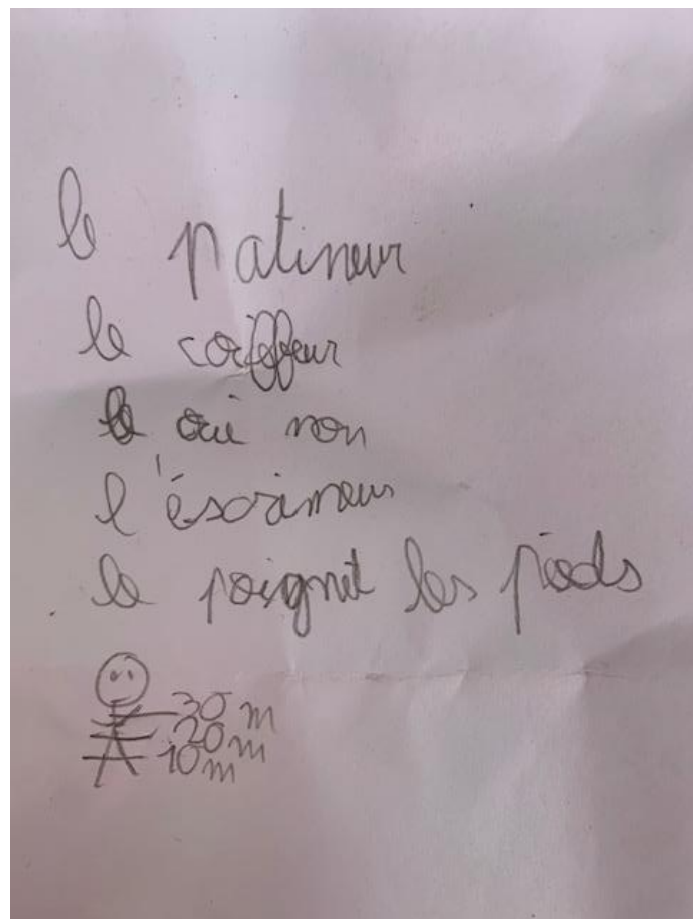 le patineur
le coiffeur
le oui non
l'éscrimeur
le poignet les pieds
30 m
20 m
10 m